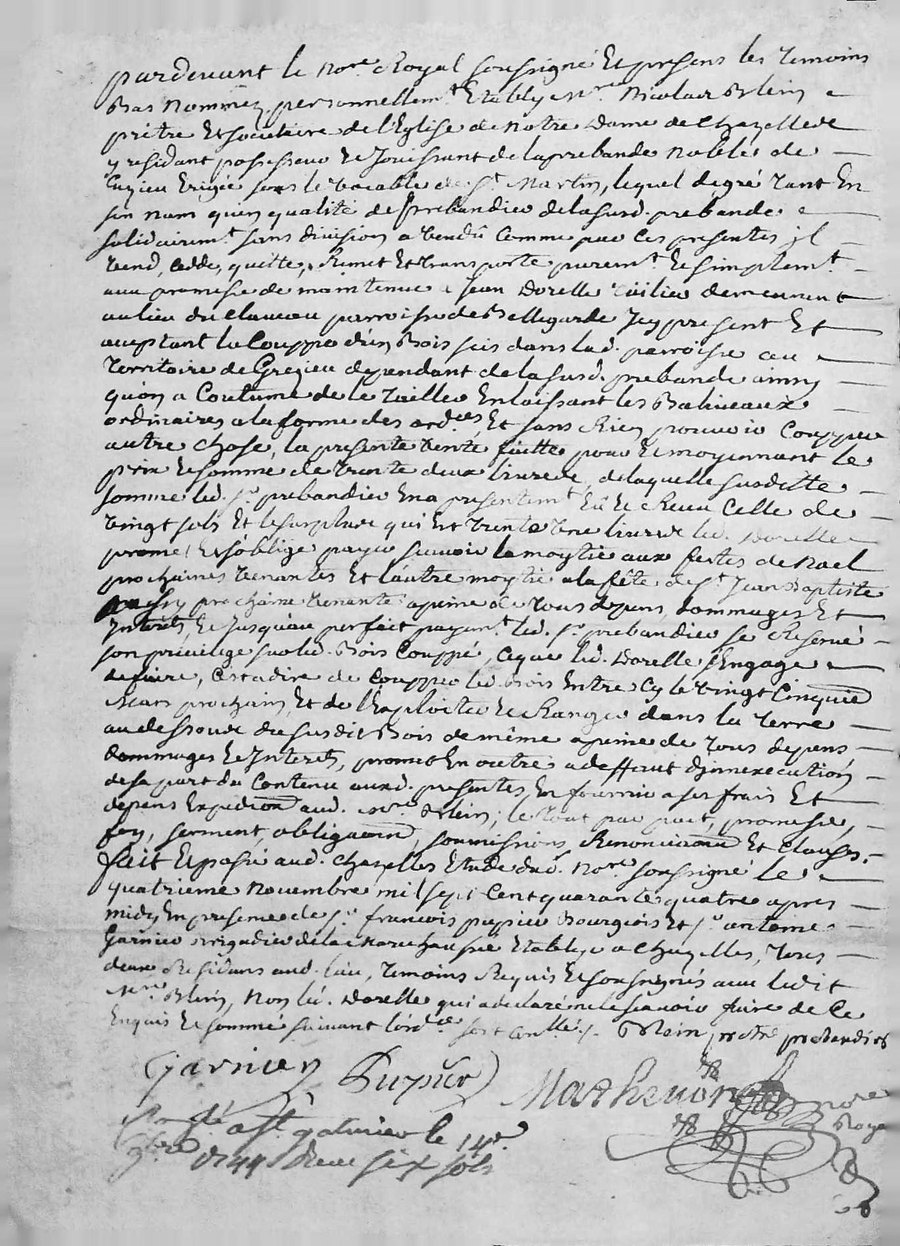 pardevant le no.re Royal soussigné Et presens les temoins
Bas nommez, personnellem.t Etably m.re Nicolas Blein
prêtre Et societaire de l'Eglise de notre dame de Chazelle de
y residant possesseur Et Jouissant de la prebande noble de
Cuzieu Erigée sous le vocable de S.t Martin, lequel de gré tant En
son nom qu'en qualité de prebandier de lasusd. prebande
solidairem.t sans division a vendû comme par ces presentes il
vend, cedde, quitte, Remet Et transporte purem.t Et simplem.t
aux promesse de maintenue a Jean Dorelle tuilier demeurant
au lieu du clameau parroisse de Bellegarde Icy present Et
acceptant la Couppe d'un Bois scis dans lad. parroisse au
territoire de Grezieu dependant de lasusd. prebande ainsy
qu'on a Coutume de le tailler En laissant les Baliveaux
ordinaires a la forme des ord.ces Et sans Rien pouvoir Coupper
autre chose, la presente vente faitte pour Et moyennant le
prix Et somme de trente deux livres, de laquelle susditte
somme led. s.r prebandier En a presentem.t Eû Et Receu Celle de
vingt sols Et le surplus qui Est trente une livres led. Dorelle
promet Et s'oblige payer scavoir la moytié aux festes de Noel
prochaines venantes Et l'autre moytié a la fête de S.t Jean Baptiste
aussy prochaine venante a peine de tous depens, dommages Et
Interets, Et Jusqu'au perfait payem.t led. s.r prebandier se Reserve
son privilege sur led. Bois Couppé, ce que led. Dorelle s'Engage
de faire, C'est a dire de Coupper led. Bois Entre Cy le vingt Cinquième
Mars prochain, Et de l'Exploiter Et Ranger dans la terre
au dessous du susdit Bois de même a peine de tous depens
dommages Et Interets, promet En outre a deffaut d'inexecution
de sa part du Contenu auxd. presentes En fournir a ses frais Et
depens Expedition aud. m.re Blein; le tout par pact, promesse,
foy, serment, obligation, soumissions, Renonciation Et Clauses.
fait Et passé aud. Chazelles Etude dud. no.re soussigné le
quatrieme novembre mil sept Cent quarante quatre apres
midy En presence de s.r françois pupier Bourgeois Et s.r antoine
Garnier Brigadier de la Marechaussée Etablye a Chazelles, tous
deux Residans aud. lieu, temoins Requis Et soussignés avec ledit
m.re Blein, Non led. Dorelle qui a declaré ne le scavoir faire de Ce
Enquis Et sommé suivant l'ord.ce Blein prebandier
Garnier Pupier Mathevon no.re
Royal
Con.lé a S.t galmier le 14e
9bre 1744 Receu six sols